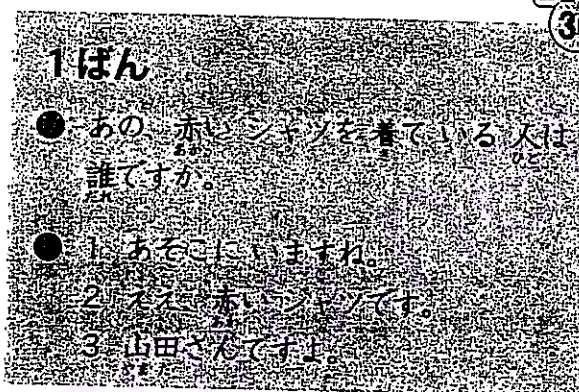 3
1ばん
●あの 赤い シャツを 着て いる 人は
誰ですか。
● 1 あそこに いますね。
2 ええ、赤い シャツです。
3 山田さんですよ。